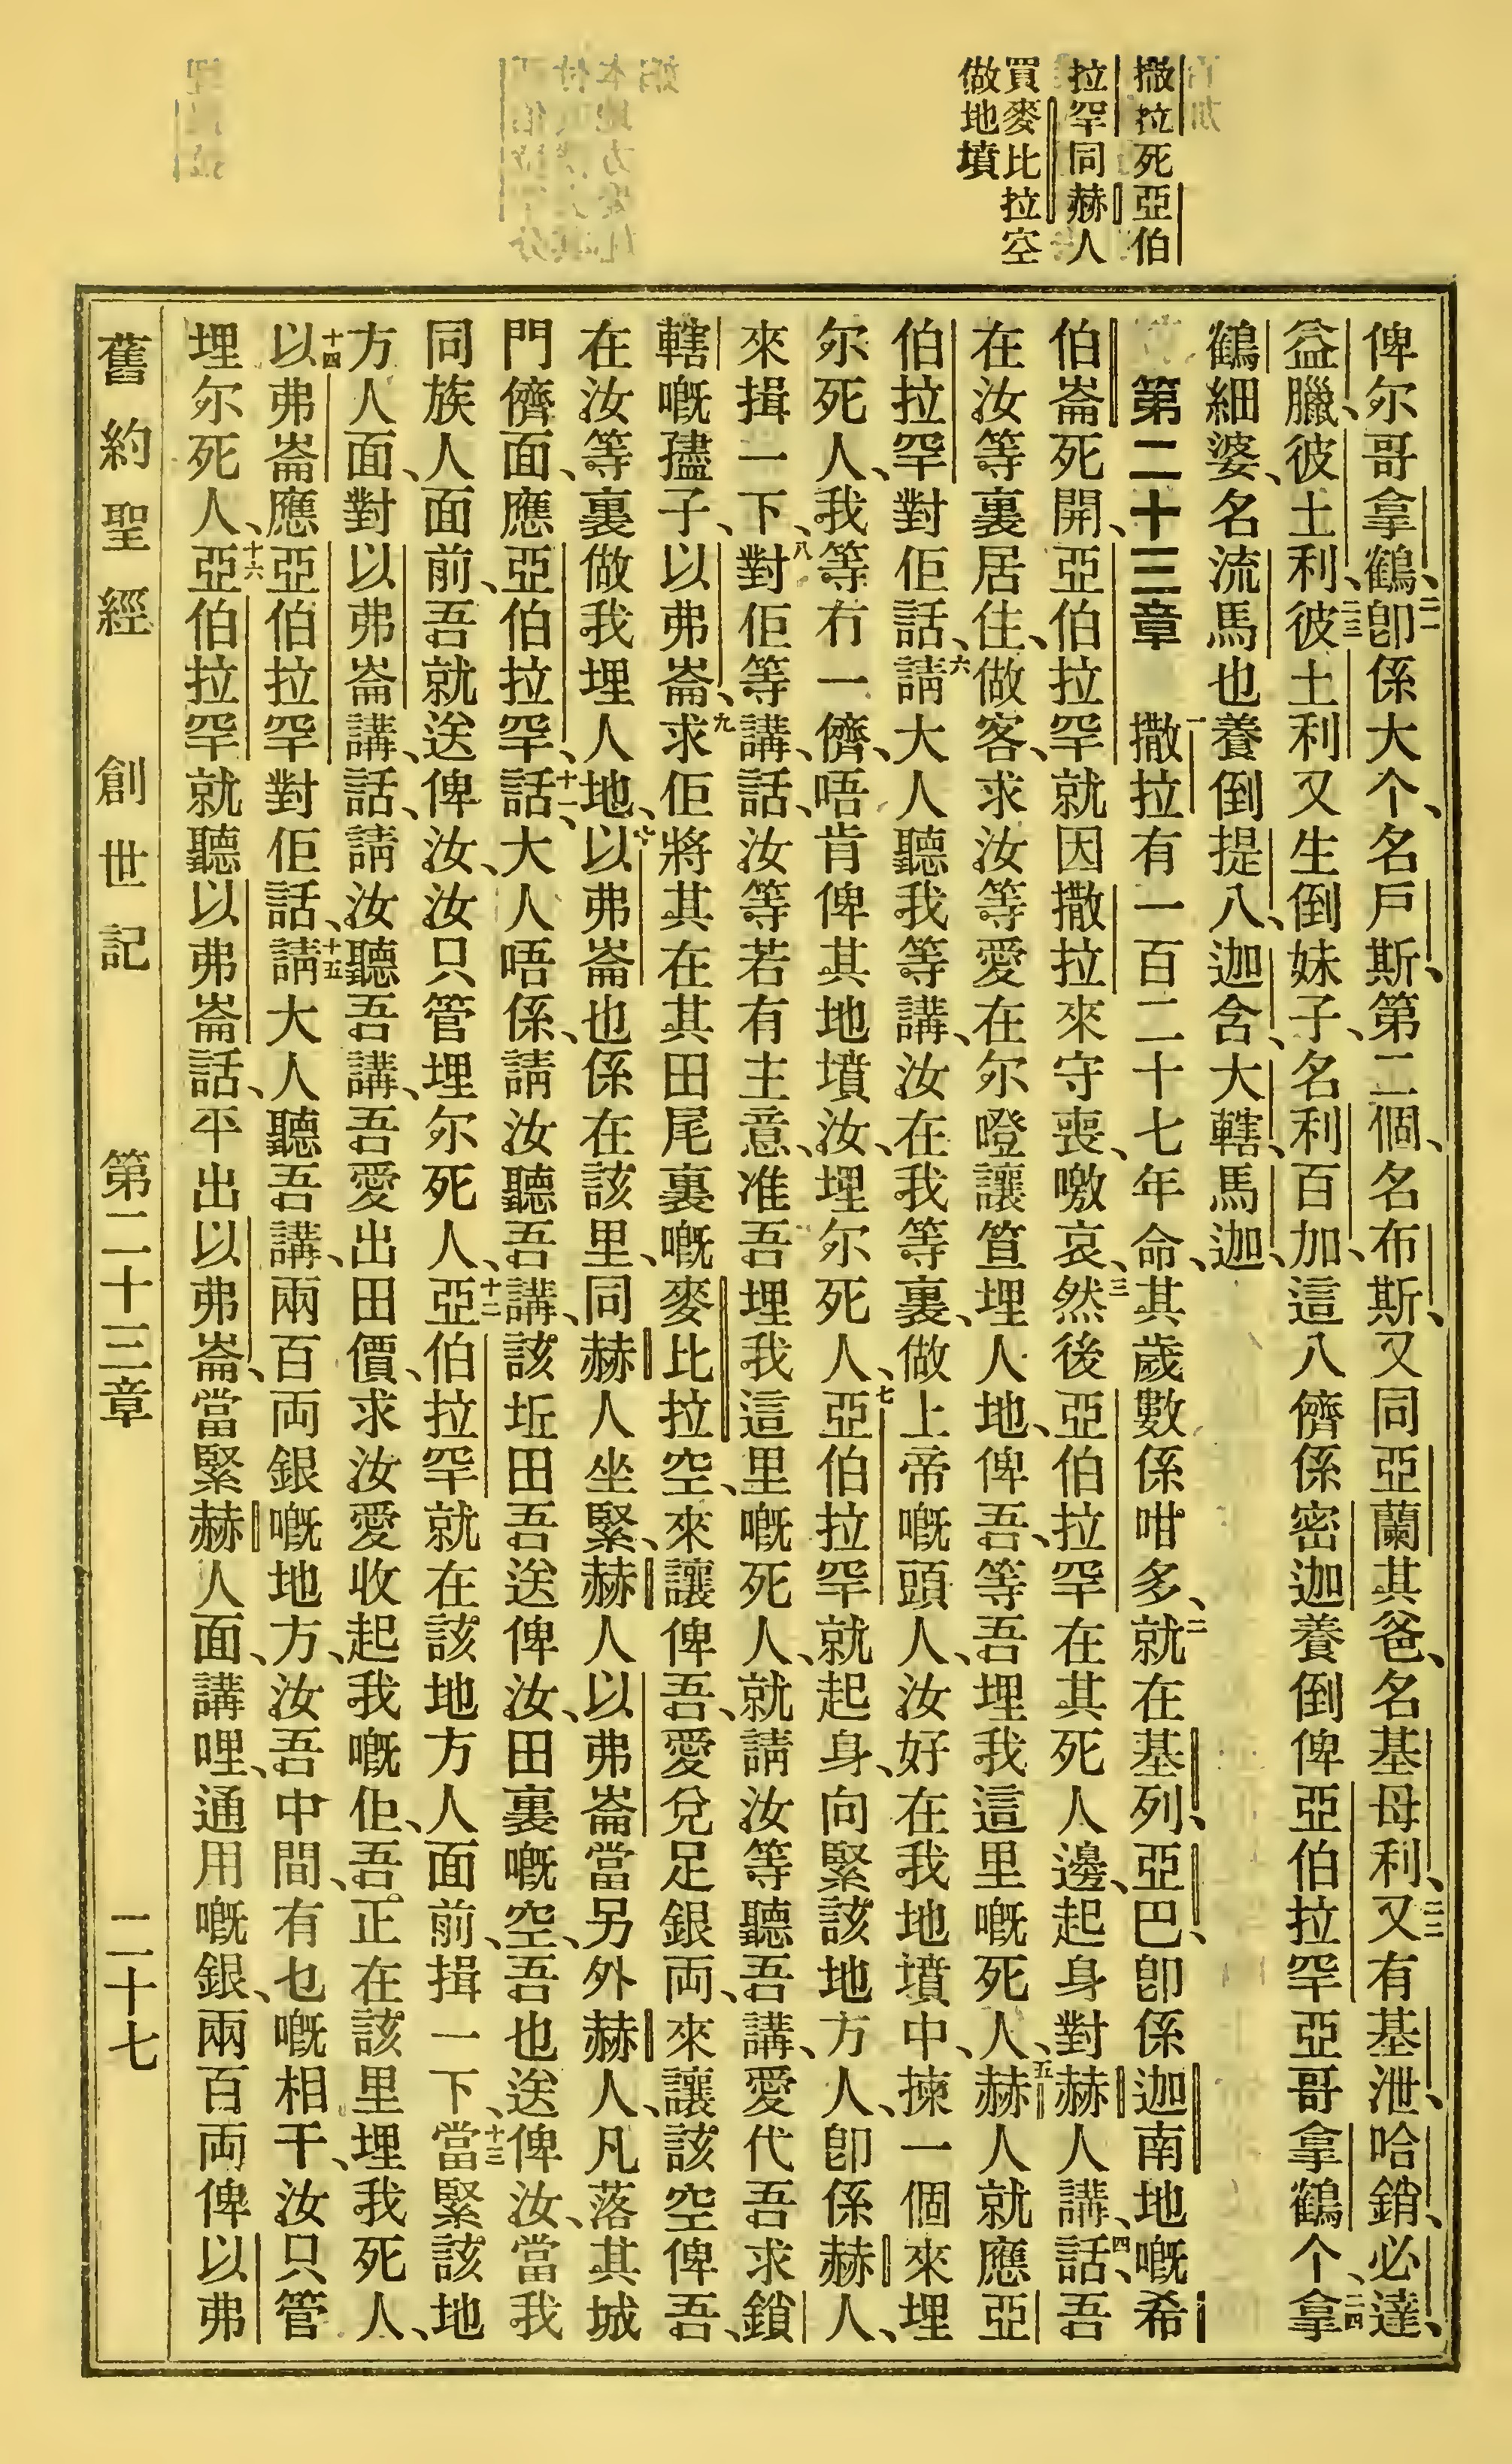 撒拉死亞伯
拉罕同赫人
買麥比拉空
做地墳
俾尔哥拿鶴、二一卽係大个、名戶斯、第二個、名布斯、又同亞蘭其爸、名基母利、二二又有基泄、哈銷、必達、
益臘、彼土利、二三彼土利又生倒妹子、名利百加、這八儕係密迦養倒俾亞伯拉罕亞哥拿鶴个、二四拿
鶴細婆、名流馬也養倒提八、迦含、大轄、馬迦、
第二十三章　一撒拉有一百二十七年命、其歲數係咁多、二就在基列、亞巴、卽係迦南地嘅希
伯崙死開、亞伯拉罕就因撒拉來守喪、噭哀、三然後亞伯拉罕在其死人邊、起身對赫人講、話、四吾
在汝等裏居住、做客、求汝等愛在尔嶝讓䇠埋人地、俾吾、等吾埋我這里嘅死人、五赫人就應亞
伯拉罕對佢話、六請大人聽我等講、汝在我等裏、做上帝嘅頭人、汝好在我地墳中、揀一個來埋
尔死人、我等冇一儕、唔肯俾其地墳汝、埋尔死人、七亞伯拉罕就起身、向緊該地方人、卽係赫人、
來揖一下、八對佢等講、話、汝等若有主意、准吾埋我這里嘅死人、就請汝等聽吾講、愛代吾求鎖
轄嘅孻子、以弗崙、九求佢將其在其田尾裏嘅麥比拉空、來讓俾吾、愛兌足銀両、來讓該空俾吾、
在汝等裏做我埋人地、十以弗崙也係在該里、同赫人坐緊、赫人以弗崙當另外赫人、凡落其城
門儕面、應亞伯拉罕、話、十一大人唔係、請汝聽吾講、該坵田吾送俾汝、田裏嘅空、吾也送俾汝、當我
同族人面前、吾就送俾汝、汝只管埋尔死人、十二亞伯拉罕就在該地方人面前、揖一下、十三當緊該地
方人面、對以弗崙講、話、請汝聽吾講、吾愛出田價、求汝愛收起我嘅佢、吾正在該里埋我死人、
十四以弗崙應亞伯拉罕對佢話、十五請大人聽吾講、兩百両銀嘅地方、汝吾中間、有乜嘅相干、汝只管
埋尔死人、十六亞伯拉罕就聽以弗崙話、平出以弗崙、當緊赫人面、講哩、通用嘅銀、兩百両俾以弗
舊約聖經　創世記　第二十三章　二十七